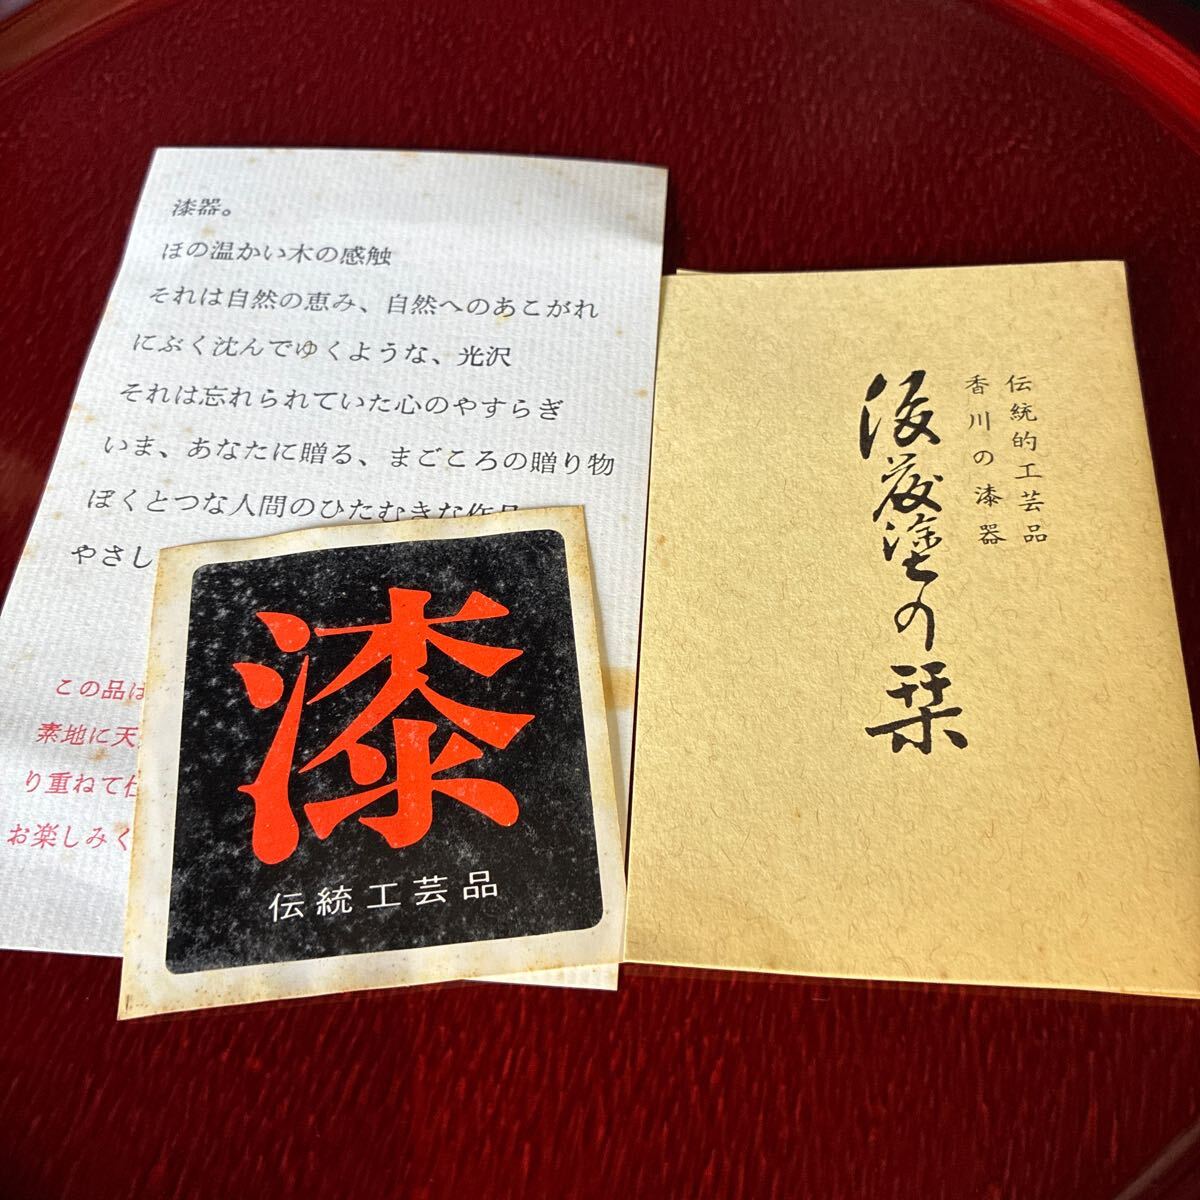 漆器。
ほの温かい木の感触
それは自然の恵み、自然へのあこがれ
にぶく沈んでゆくような、光沢
それは忘れられていた心のやすらぎ
いま、あなたに贈る、まごころの贈り物
ぼくとつな人間のひたむきな作品
やさし
この品は
素地に天
り重ねて仕
お楽しみく
漆
伝統工芸品
伝統的工芸品
香川の漆器
後藤塗の栞